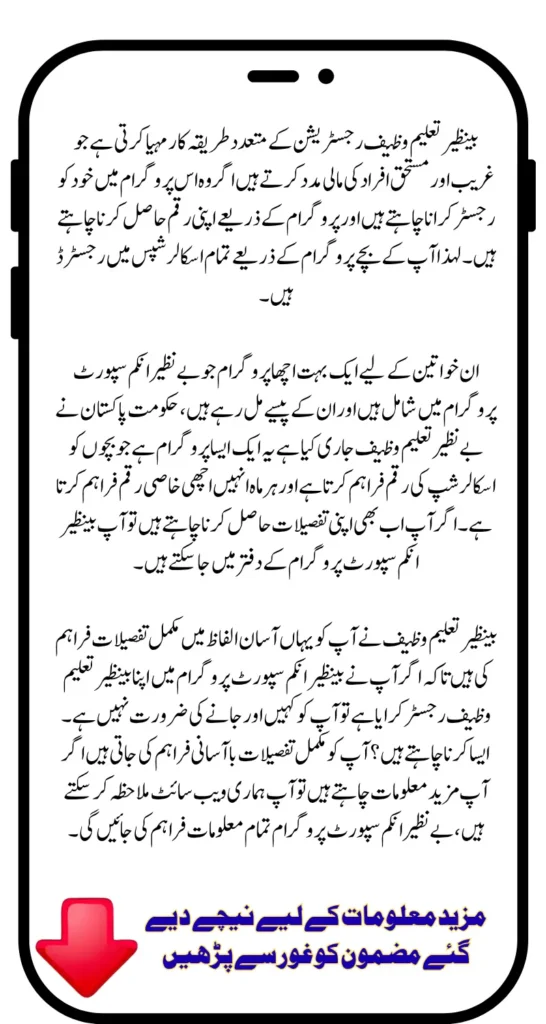 بینظیر تعلیم وظیف رجسٹریشن کے متعدد طریقہ کار مہیا کرتی ہے جو
غریب اور مستحق افراد کی مالی مدد کرتے ہیں اگر وہ اس پروگرام میں خود کو
رجسٹر کرانا چاہتے ہیں اور پروگرام کے ذریعے اپنی رقم حاصل کرنا چاہتے
ہیں۔ لہذا آپ کے بچے پروگرام کے ذریعے تمام اسکالرشپس میں رجسٹرڈ
ہیں۔
ان خواتین کے لیے ایک بہت اچھا پروگرام جو بے نظیر انکم سپورٹ
پروگرام میں شامل ہیں اور ان کے پیسے مل رہے ہیں، حکومت پاکستان نے
بے نظیر تعلیم وظیف جاری کیا ہے یہ ایک ایسا پروگرام ہے جو بچوں کو
اسکالرشپ کی رقم فراہم کرتا ہے اور ہر ماہ انہیں اچھی خاصی رقم فراہم کرتا
ہے۔ اگر آپ اب بھی اپنی تفصیلات حاصل کرنا چاہتے ہیں تو آپ بینظیر
انکم سپورٹ پروگرام کے دفتر میں جا سکتے ہیں۔
بینظیر تعلیم وظیف نے آپ کو یہاں آسان الفاظ میں مکمل تفصیلات فراہم
کی ہیں تاکہ اگر آپ نے بینظیر انکم سپورٹ پروگرام میں اپنا بینظیر تعلیم
وظیف رجسٹر کرایا ہے تو آپ کو کہیں اور جانے کی ضرورت نہیں ہے۔
ایسا کرنا چاہتے ہیں؟ آپ کو مکمل تفصیلات با آسانی فراہم کی جاتی ہیں اگر
آپ مزید معلومات چاہتے ہیں تو آپ ہماری ویب سائٹ ملاحظہ کر سکتے
ہیں، بے نظیر انکم سپورٹ پروگرام تمام معلومات فراہم کی جائیں گی۔
مزید معلومات کے لیے نیچے دیے
گئے مضمون کو غور سے پڑھیں